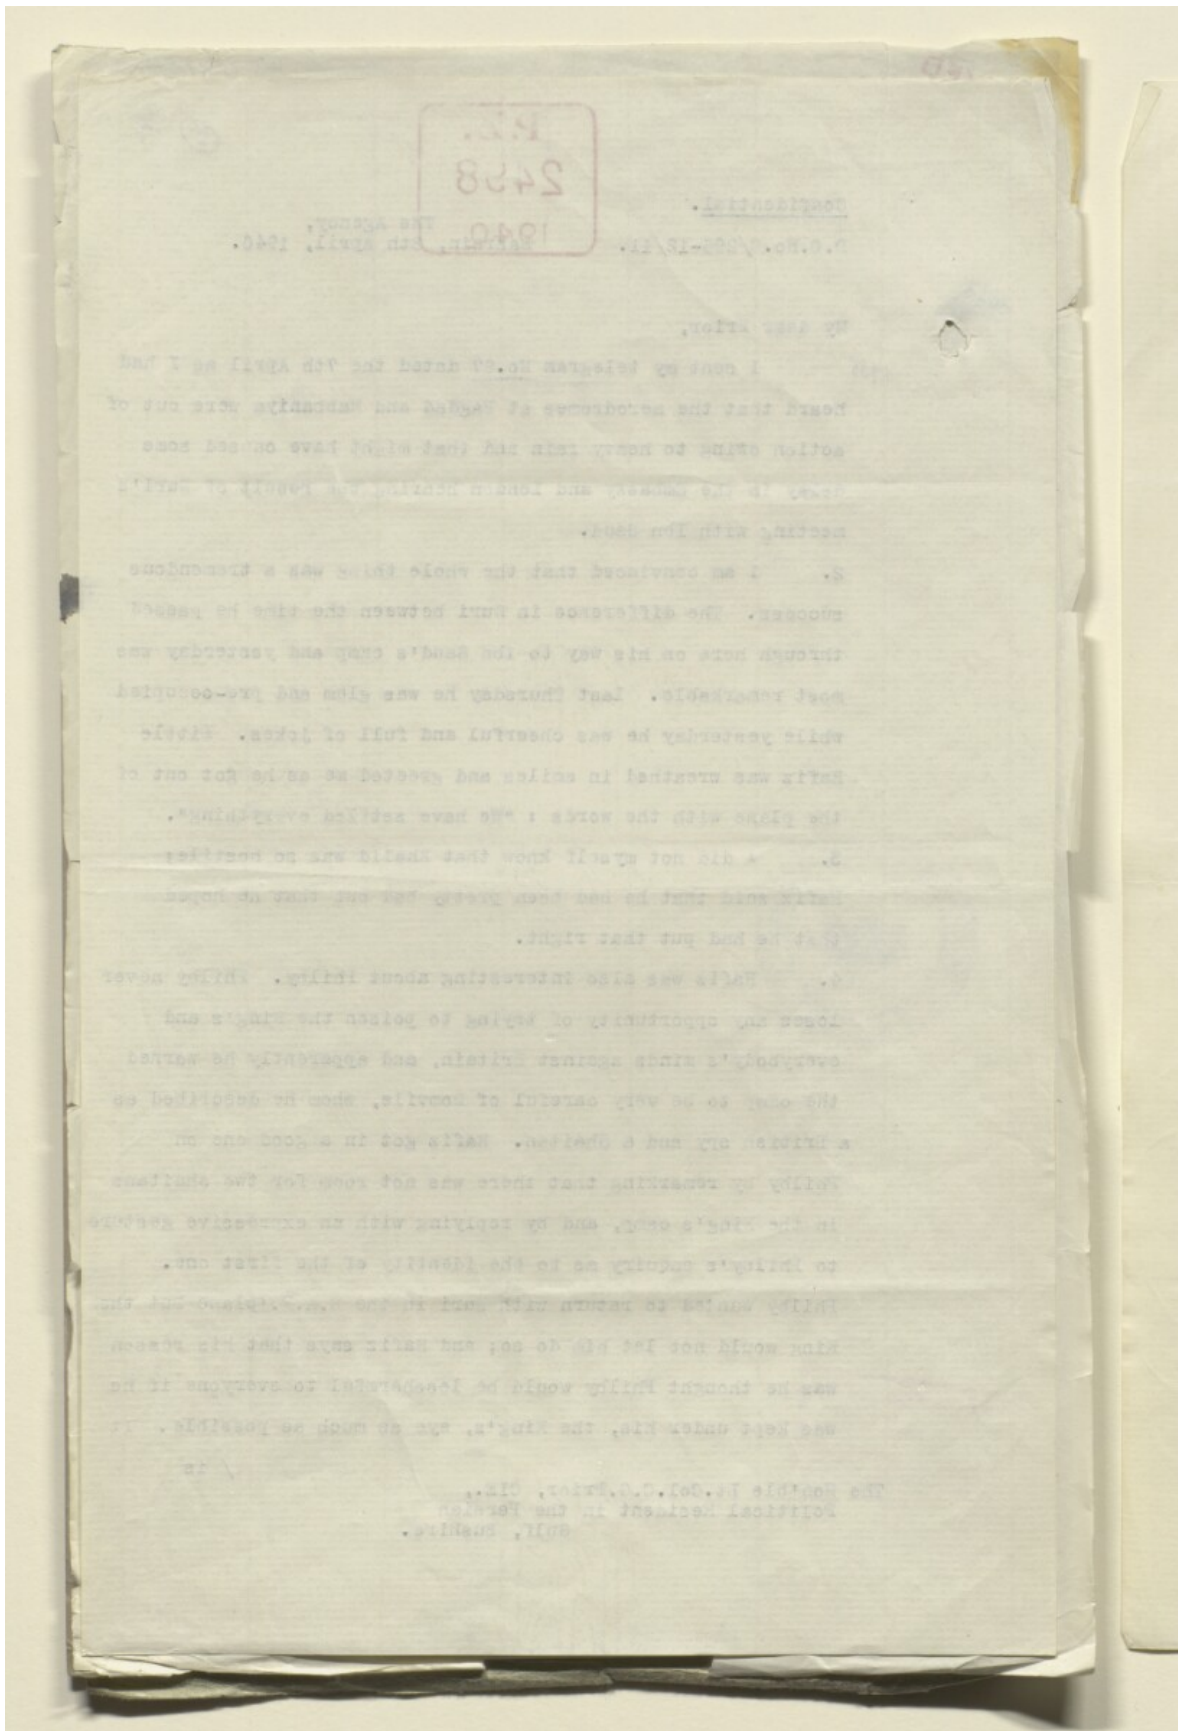 P.Z.
2498
1940
Confidential.
The Agency,
Bahrain, 8th April, 1940.
My dear Prior,
I sent my telegram No.87 dated the 7th April as I had
heard that the aerodromes at and were out of
action owing to heavy rain and that might have caused some
delay in the Embassy and London hearing the result of Nuri's
meeting with Ibn Saud.
2. I am convinced that the whole thing was a tremendous
success. The difference in Nuri between the time he passed
through here on his way to Ibn Saud's camp and yesterday was
most remarkable. Last Thursday he was glum and pre-occupied
while yesterday he was cheerful and full of jokes. Little
Hafiz was wreathed in smiles and greeted me as he got out of
the plane with the words : "We have settled everything".
3. I did not myself know that Khalid was so hostile;
Hafiz said that he had been pretty bad but that he hoped
that he had put that right.
4. Hafiz was also interesting about Philby. Philby never
loses any opportunity of trying to poison the King's and
everybody's minds against Britain, and apparently he warned
the camp to be very careful of whom he described as
a British spy and a Shaitan. Hafiz got in a good one on
Philby by remarking that there was not room for two Shaitans
in the King's camp, and by replying with an expressive gesture
to Philby's enquiry as to the identity of the first one.
Philby wanted to return with Nuri in the plane but the
King would not let him do so; and Hafiz says that his reason
was he thought Philby would be less harmful to everyone if he
was kept under his, the King's, eye as much as possible. It
/ is
The Hon'ble Lt.Col.C.G.Prior, CIE.,
Political Resident in the Persian
Gulf, Bushire.